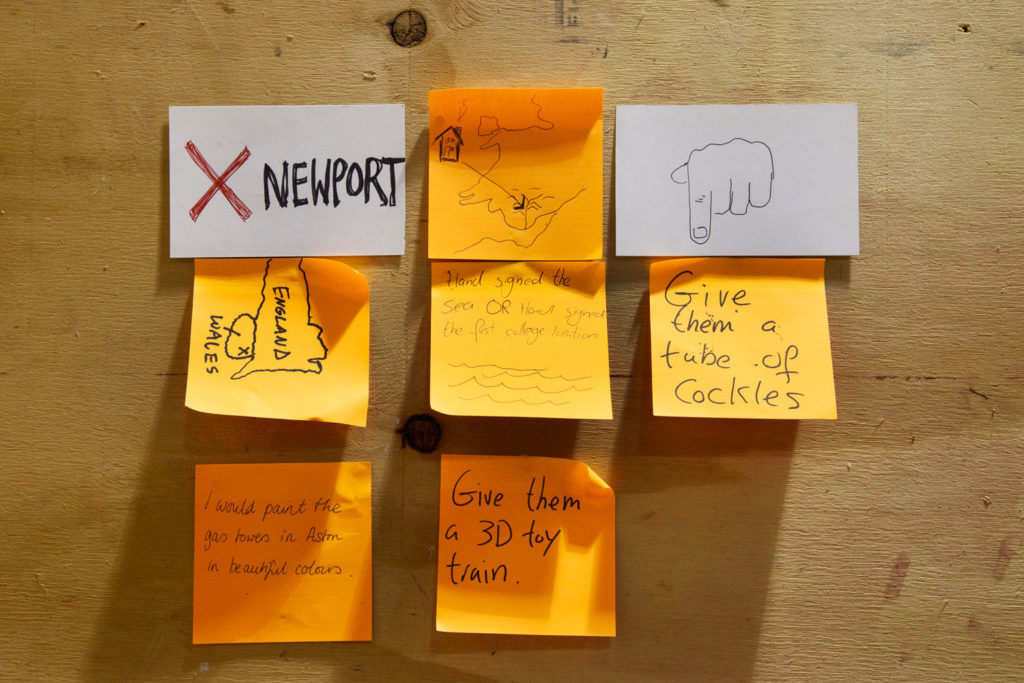 X NEWPORT
ENGLAND
WALES
x
Hand signed the
sea OR Hand signed
the first college location
Give
them a
tube of
Cockles
I would paint the
gas towers in Aston
in beautiful colours.
Give them
a 3D toy
train.